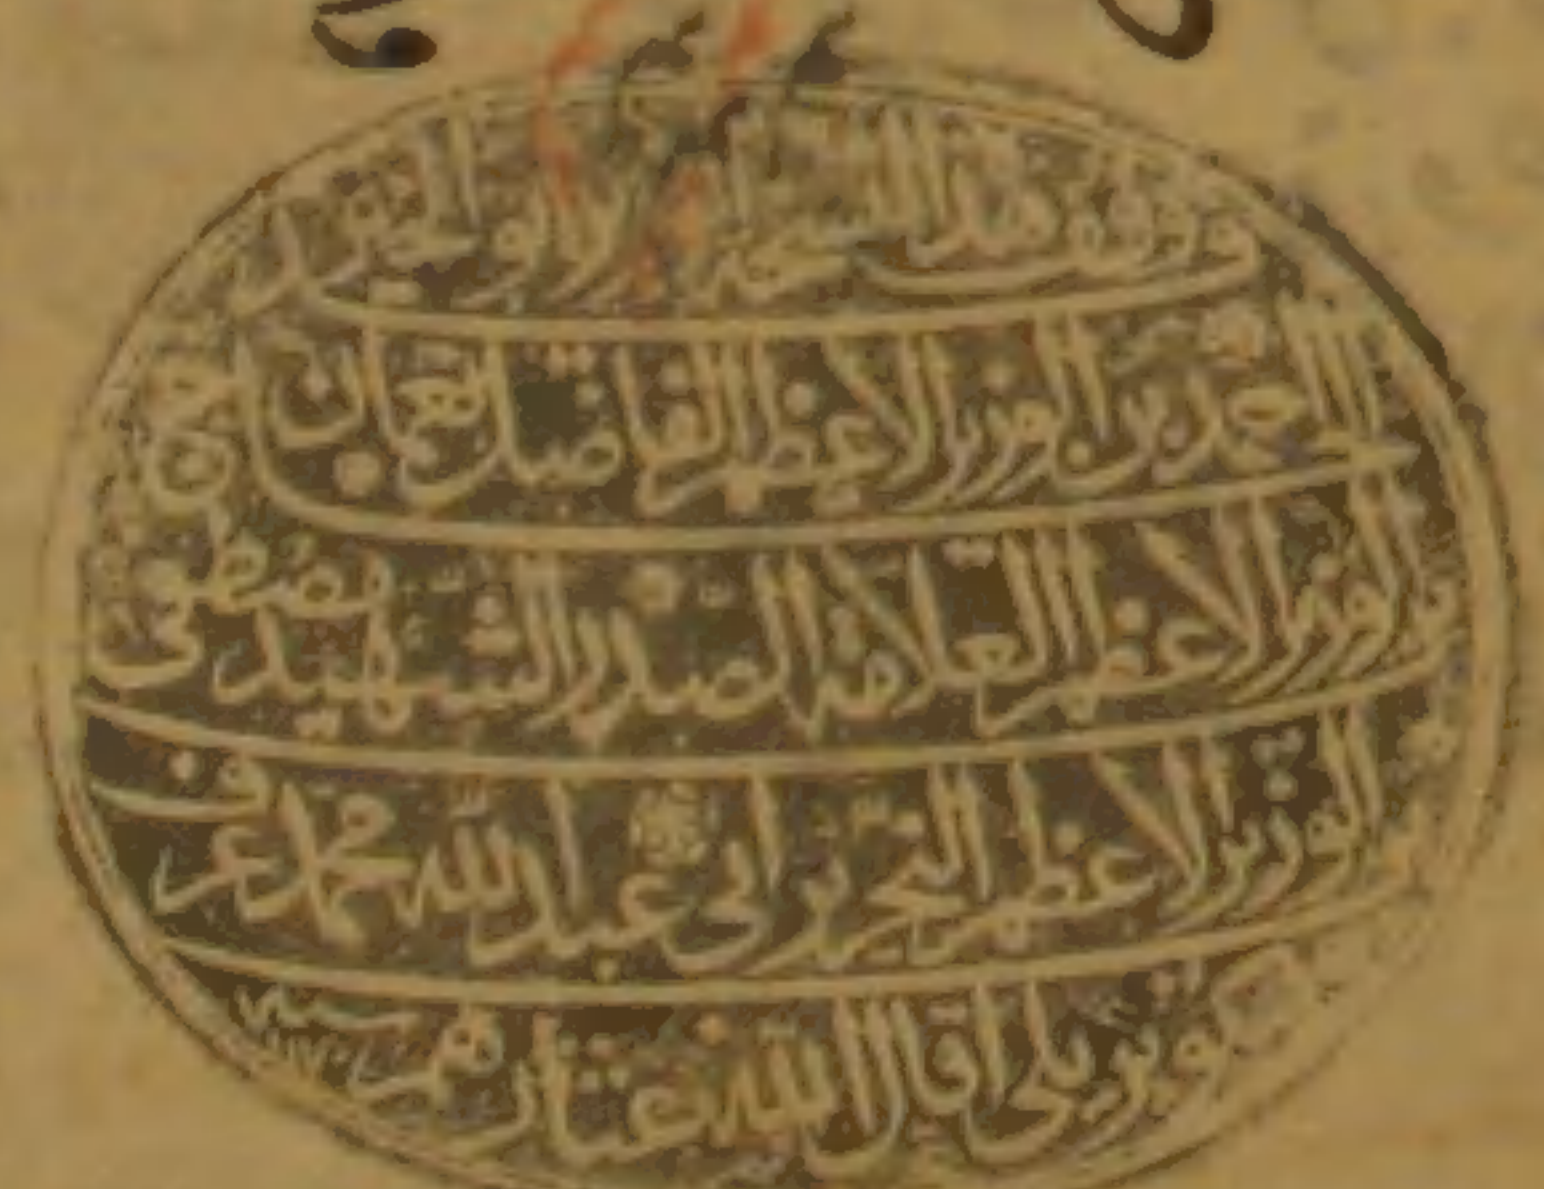 وقف هذا ابو الخير
احمد بن الوزير الاعظم الفاضل نعمان
بن الوزير الاعظم العلامة الصدر الشهيد مصطفى
بن الوزير الاعظم النحرير ابي عبد الله محمد عرف
بكوبريلي اقال الله عثارهم سنه